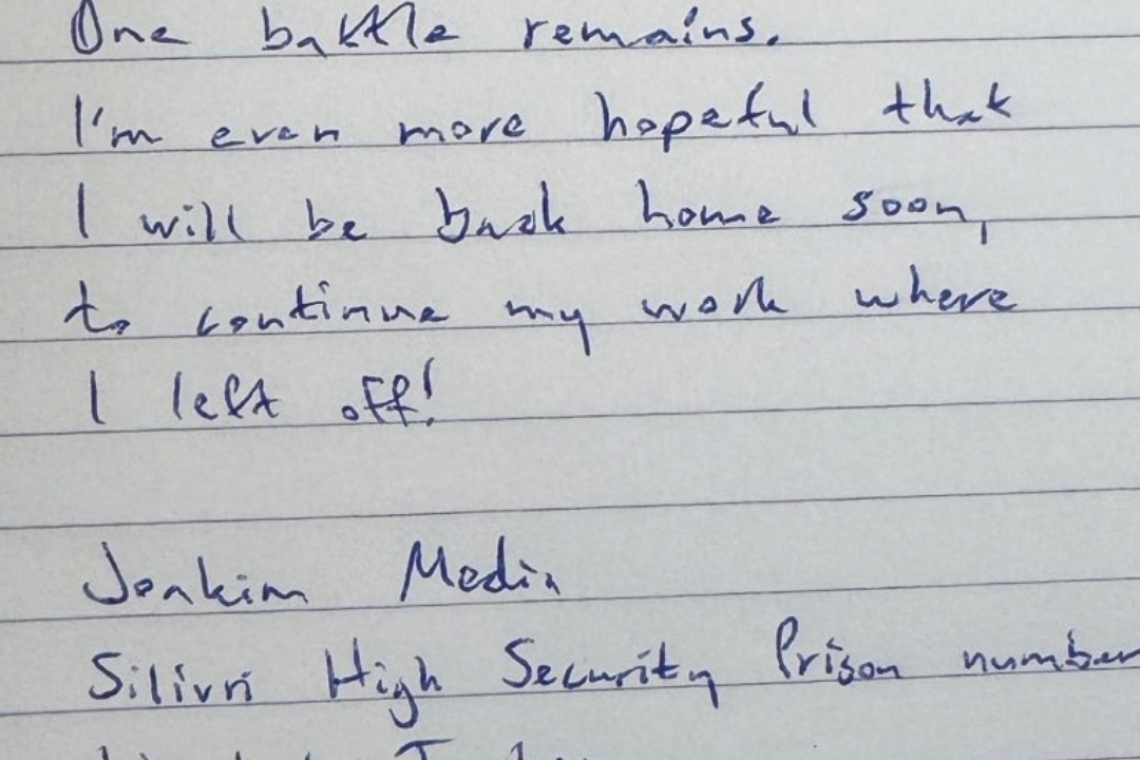 One battle remains.
I'm even more hopeful that
I will be back home soon,
to continue my work where
I left off!
Joakim Medin
Silivri High Security Prison number